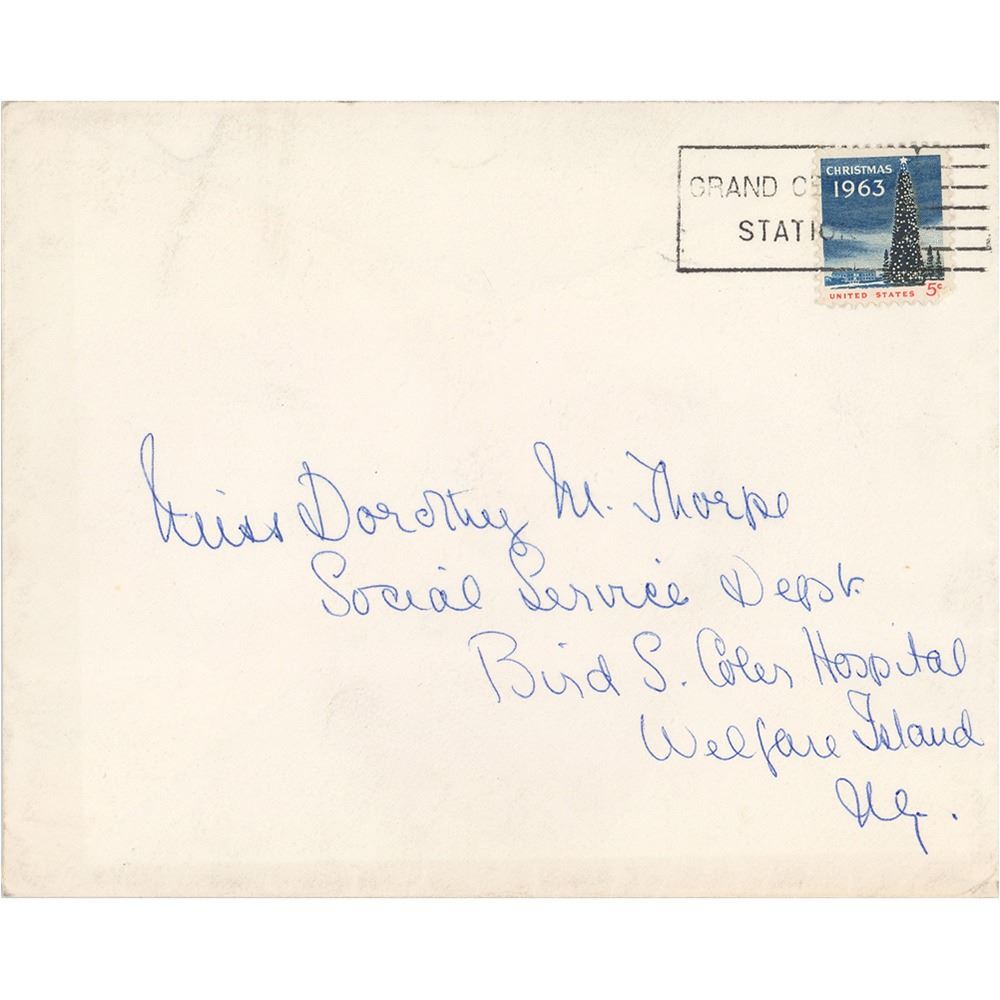 GRAND CE
STATION
CHRISTMAS
1963
UNITED STATES 5c
Miss Dorothy M. Thorpe
Social Service Dept.
Bird S. Coler Hospital
Welfare Island
N.Y.